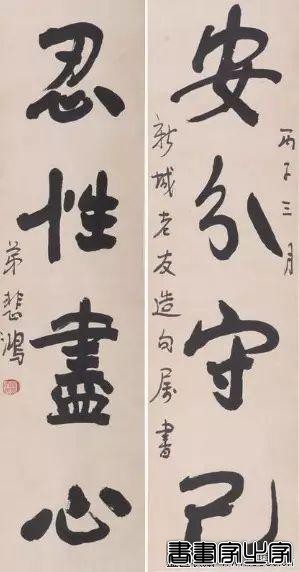 丙子三月
安分守己
新城老友造句属書
忍性盡心
弟悲鴻
書畫家必字